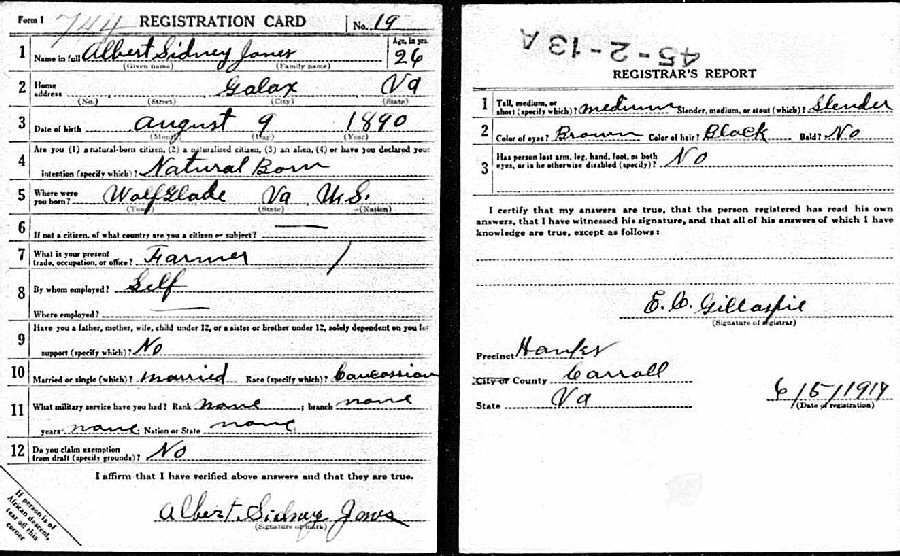 Form 1 744 REGISTRATION CARD No. 19
1 Name in full Albert Sidney Jones Age, in yrs. 26
(Given name) (Family name)
2 Home address Galax Va
(No.) (Street) (City) (State)
3 Date of birth August 9 1890
(Month) (Day) (Year)
4 Are you (1) a natural-born citizen, (2) a naturalized citizen, (3) an alien, (4) or have you declared your
intention (specify which)? Natural Born
5 Where were you born? Wolf Glade Va U.S.
(Town) (State) (Nation)
6 If not a citizen, of what country are you a citizen or subject?
7 What is your present trade, occupation, or office? Farmer
8 By whom employed? Self
Where employed?
9 Have you a father, mother, wife, child under 12, or a sister or brother under 12, solely dependent on you for
support (specify which)? No
10 Married or single (which)? Married Race (specify which)? Caucassian
11 What military service have you had? Rank none ; branch none
years none Nation or State none
12 Do you claim exemption from draft (specify grounds)? No
I affirm that I have verified above answers and that they are true.
Albert Sidney Jones
(Signature or mark)
If person is of
African descent,
tear off this
corner
45-2-13 A
REGISTRAR'S REPORT
1 Tall, medium, or short (specify which)? medium Slender, medium, or stout (which)? Slender
2 Color of eyes? Brown Color of hair? Black Bald? No
3 Has person lost arm, leg, hand, foot, or both eyes, or is he otherwise disabled (specify)? No
I certify that my answers are true, that the person registered has read his own
answers, that I have witnessed his signature, and that all of his answers of which I have
knowledge are true, except as follows:
E. C. Gillaspie
(Signature of registrar)
Precinct
City or County Carroll
State Va 6/5/1917
(Date of registration)